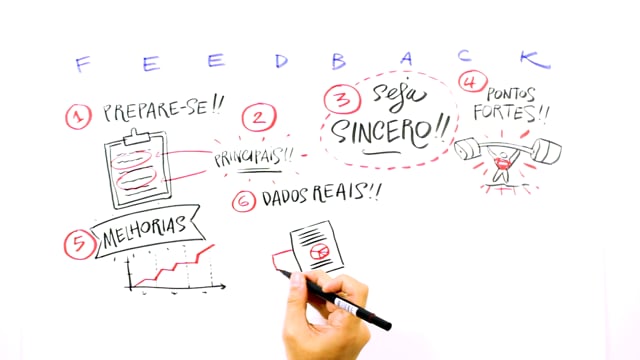 F E E D B A C K
1 PREPARE-SE!!
2
PRINCIPAIS!!
3 Seja
SINCERO!!
4 PONTOS
FORTES!!
5 MELHORIAS
6 DADOS REAIS!!